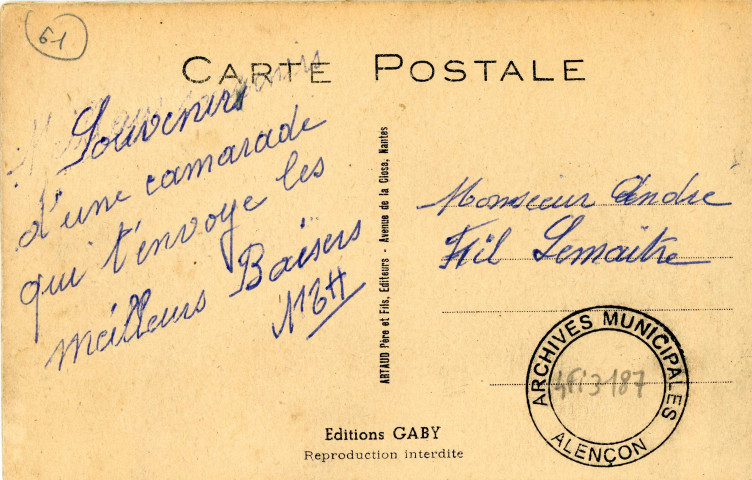 61
CARTE POSTALE
Souvenirs
d'une camarade
qui t'envoye les
meilleurs Baisers
ARTAUD Père et Fils, Editeurs - Avenue de la Close, Nantes
Monsieur André
Lemaitre
ARCHIVES MUNICIPALES
4Fi3-187
ALENÇON
Editions GABY
Reproduction interdite